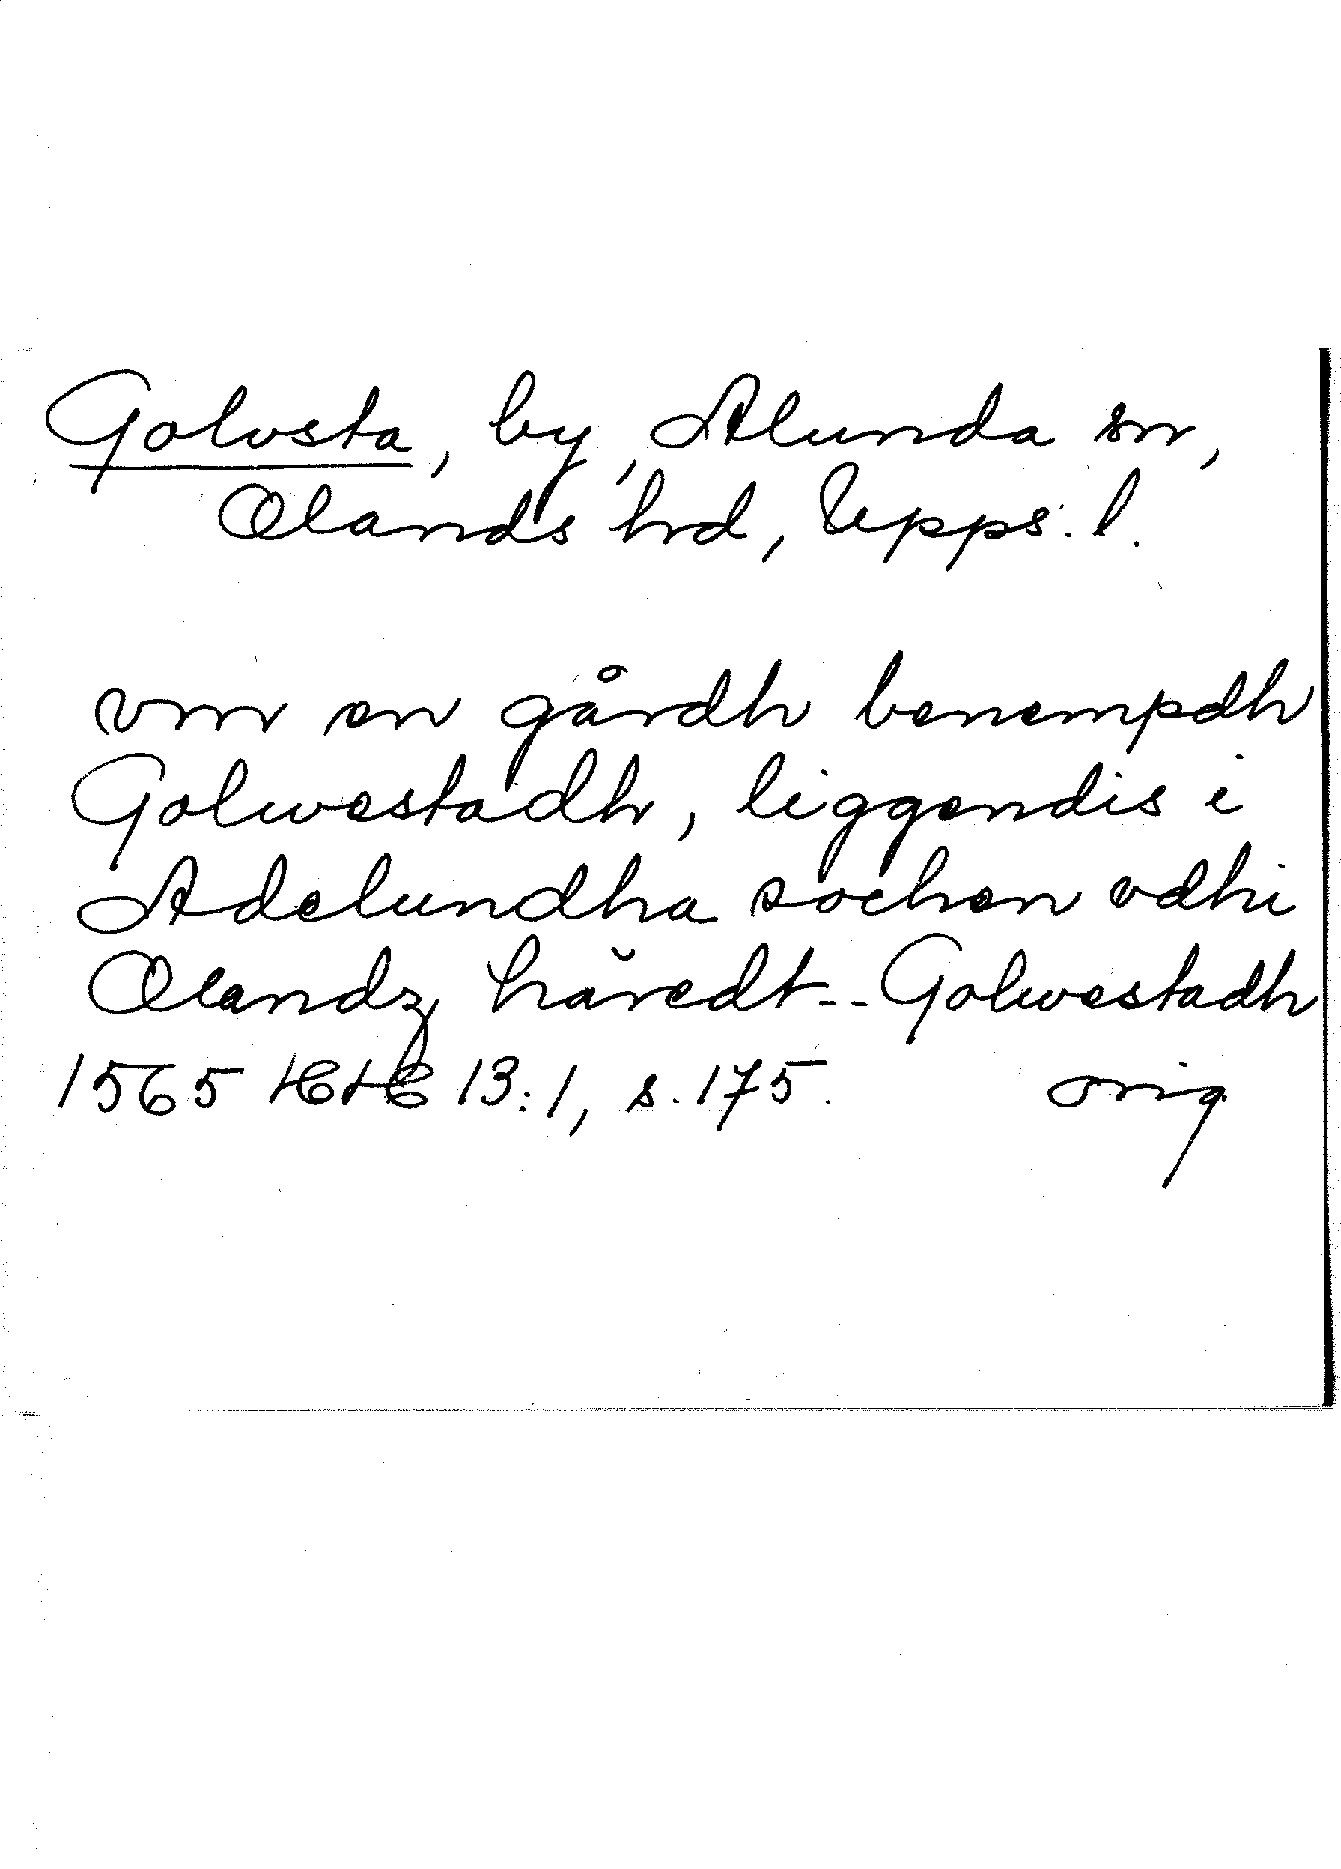 Golvsta, by, Alunda sn,
Olands hrd, Upps. l.
vm en gårdh benempdh
Golwestadh, liggendis i
Adelundha sochen vdhi
Olandz häredt -- Golwestadh
1565 HH 13:1, s. 175. orig